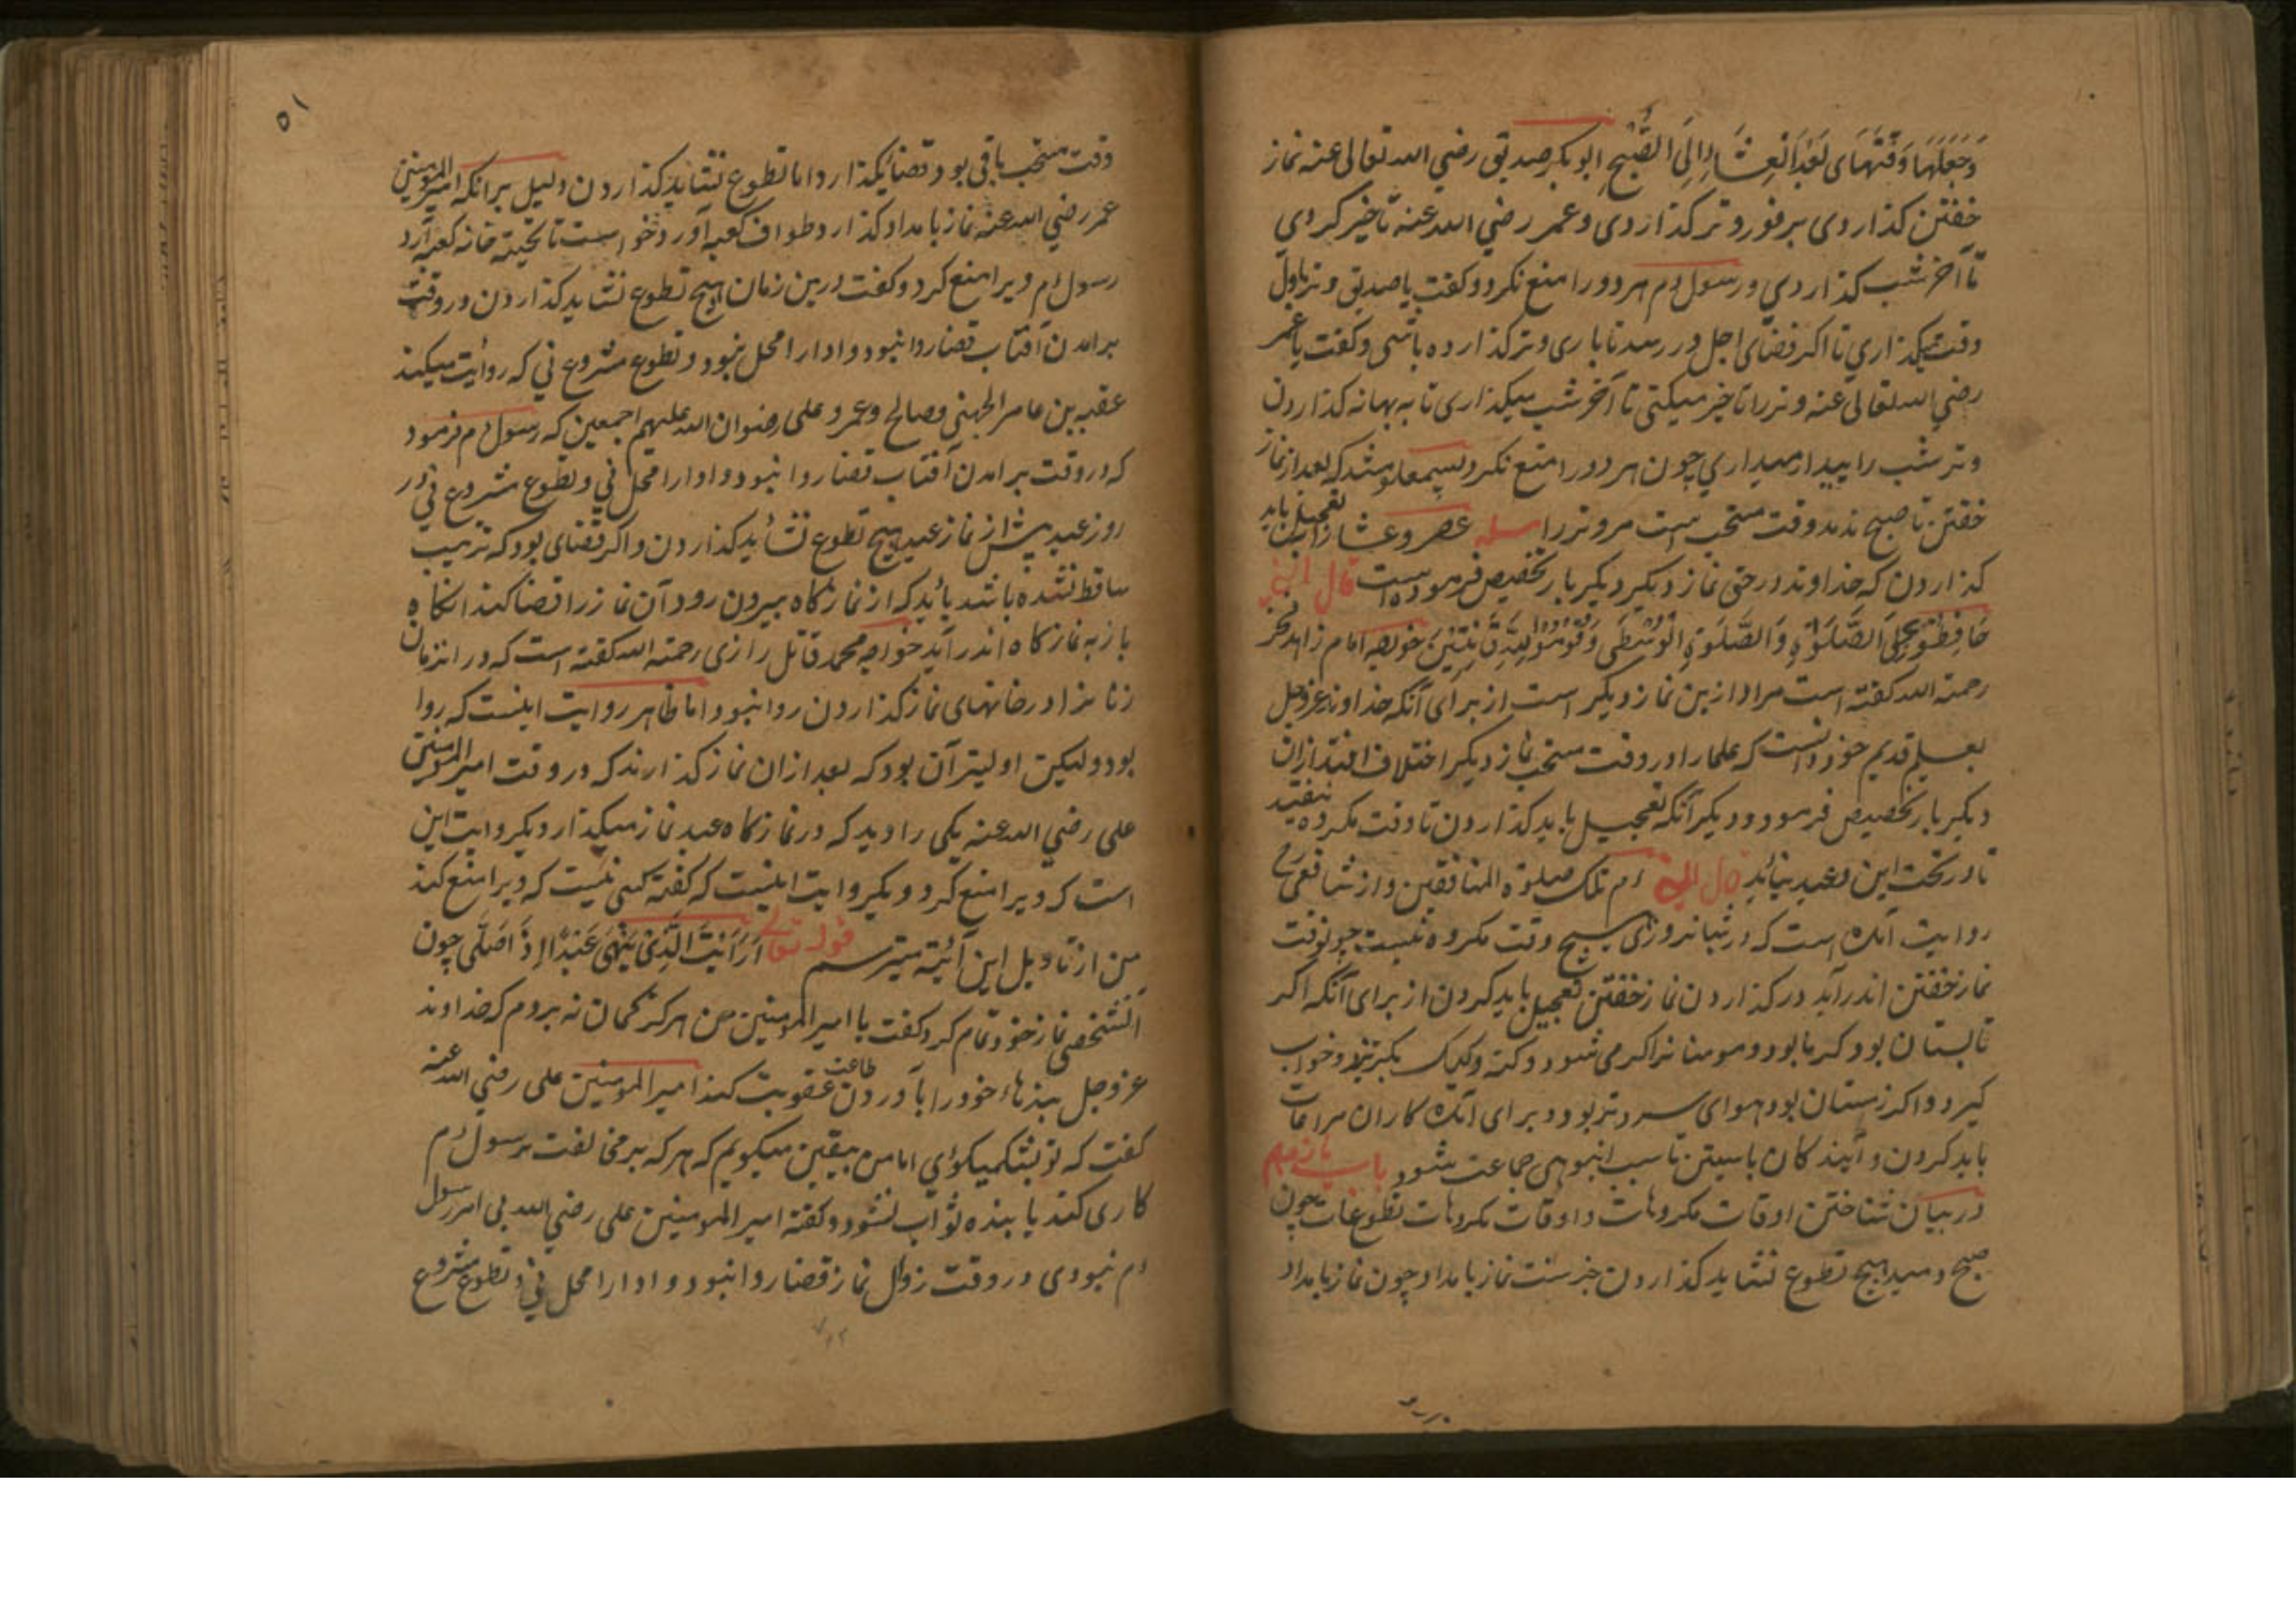 وَجَعَلَهَا وَقْتَهَای بَعْدَ الْعِشَاءِ اِلَی الصُّبْحِ ابو بکر صدیق رضی الله تعالی عنه نماز
خفتن کذاردی بر فور وتر کذاردی و عمر رضی الله عنه تاخیر کردی
تا آخر شب کذاردی و رسول م هر دو را منع نکرد و کفت یا صدیق وتر باول
وقت میکذاری تا اکر قضای اجل در رسد تا باری وتر کذارده باشی و کفت یا عمر
رضی الله تعالی عنه وتر را تاخیر میکنی تا آخر شب میکذاری تا به بهانه کذاردن
وتر شب را بیدار میداری چون هر دو را منع نکرد پس معلوم شد که بعد از نماز
خفتن تا صبح ندمد وقت مستحب است مر وتر را مسله عصر و عشا را تعجیل باید
کذاردن که خداوند در حق نماز دیکر دیکر بار تخصیص فرموده است قال الله
حَافِظُوْ عَلَی الصَّلَوٰةِ وَالصَّلَوٰةِ الْوُسْطَی وَقُوْمُوْ لِلّٰهِ قٰنِتِیْنَ خواجه امام زاهد فخر
رحمة الله کفته است مراد ازین نماز دیکر است از برای آنکه خداوند عز وجل
بعلم قدیم خود دانست که علما را در وقت مستحب نماز دیکر اختلاف افتد ازان
دیکر بار تخصیص فرمود و دیکر آنکه تعجیل باید کذاردن تا وقت مکروه نیفتید
تا در تحت این وعید نیاید قال النبی م تلک صلوة المنافقین و از شافعی رح
روایت آنک است که در شبانروزی هیچ وقت مکروه نیست چو نوقت
نماز خفتن اندر آید در کذاردن نماز خفتن تعجیل باید کردن از برای آنکه اکر
تابستان بود کرما بود و مومنانرا کرمی شود و کته و کیک بکیرد و خواب
کیرد و اکر زمستان بود هوای سردتر بود و برای آنک کاران مراعات
باید کردن و آیندکان بایستن تا سبب انبوهی جماعت شود باب یازدهم
در بیان شناختن اوقات مکروهات و اوقات مکروهات تطوعات چون
صبح دمید هیچ تطوع نشاید کذاردن جز سنت نماز بامداد چون نماز بامداد
۵۱
وقت مستحب باقی بود قضا بکذارد اما تطوع نشاید کذاردن دلیل برانکه امیر المومنین
عمر رضی الله عنه نماز بامداد کذارد و طواف کعبه آورد خواست تا تحیته خانه کعبه آرد
رسول م ویرا منع کرد و کفت درین زمان هیچ تطوع نشاید کذاردن و در وقت
برامدن آفتاب قضا روا نبود و ادا را محل نبود و تطوع مشروع نی که روایت میکند
عقبه بن عامر الجهنی و صالح و عمر و علی رضوان الله علیهم اجمعین که رسول م فرمود
که در وقت برامدن آفتاب قضا روا نبود و ادا را محل نی و تطوع مشروع نی در
روز عید پیش از نماز عید هیچ تطوع نشاید کذاردن و اکر قضای بود که ترتیب
ساقط نشده باشد باید که از نمازکاه بیرون رود آن نماز را قضا کند آنکاه
باز به نمازکاه اندر آید خواجه محمد قاتل رازی رحمته الله کفته است که در انزمان
زنانرا در خانهای نماز کذاردن روا نبود اما ظاهر روایت اینست که روا
بود ولیکن اولیتر آن بود که بعد ازان نماز کذارند که در وقت امیر المومنین
علی رضی الله عنه یکی را دید که در نمازکاه عید نماز میکذارد دیکر روایت این
است که ویرا منع کرد و دیکر روایت اینست که کفته کسی نیست که ویرا منع کند
من از تاویل این آیته میترسم قوله تعالی اَرَاَیْتَ الَّذِیْ یَنْهٰی عَبْدًا اِذَ اصَلّٰی چون
آنشخص نماز خود تمام کرد کفت یا امیر المومنین من هرکز کمان نه بردم که خداوند
عز وجل بندهاء خود را بآوردن طاعت عقوبت کند امیر المومنین علی رضی الله عنه
کفت که تو بشک میکوئی اما من بیقین میکویم که هر که بر مخالفت رسول م
کاری کند یا بنده ثواب نشود و کفته امیر المومنین علی رضی الله بی امر رسول
م نبودی در وقت زوال نماز قضا روا نبود و ادا را محل نی و تطوع مشروع